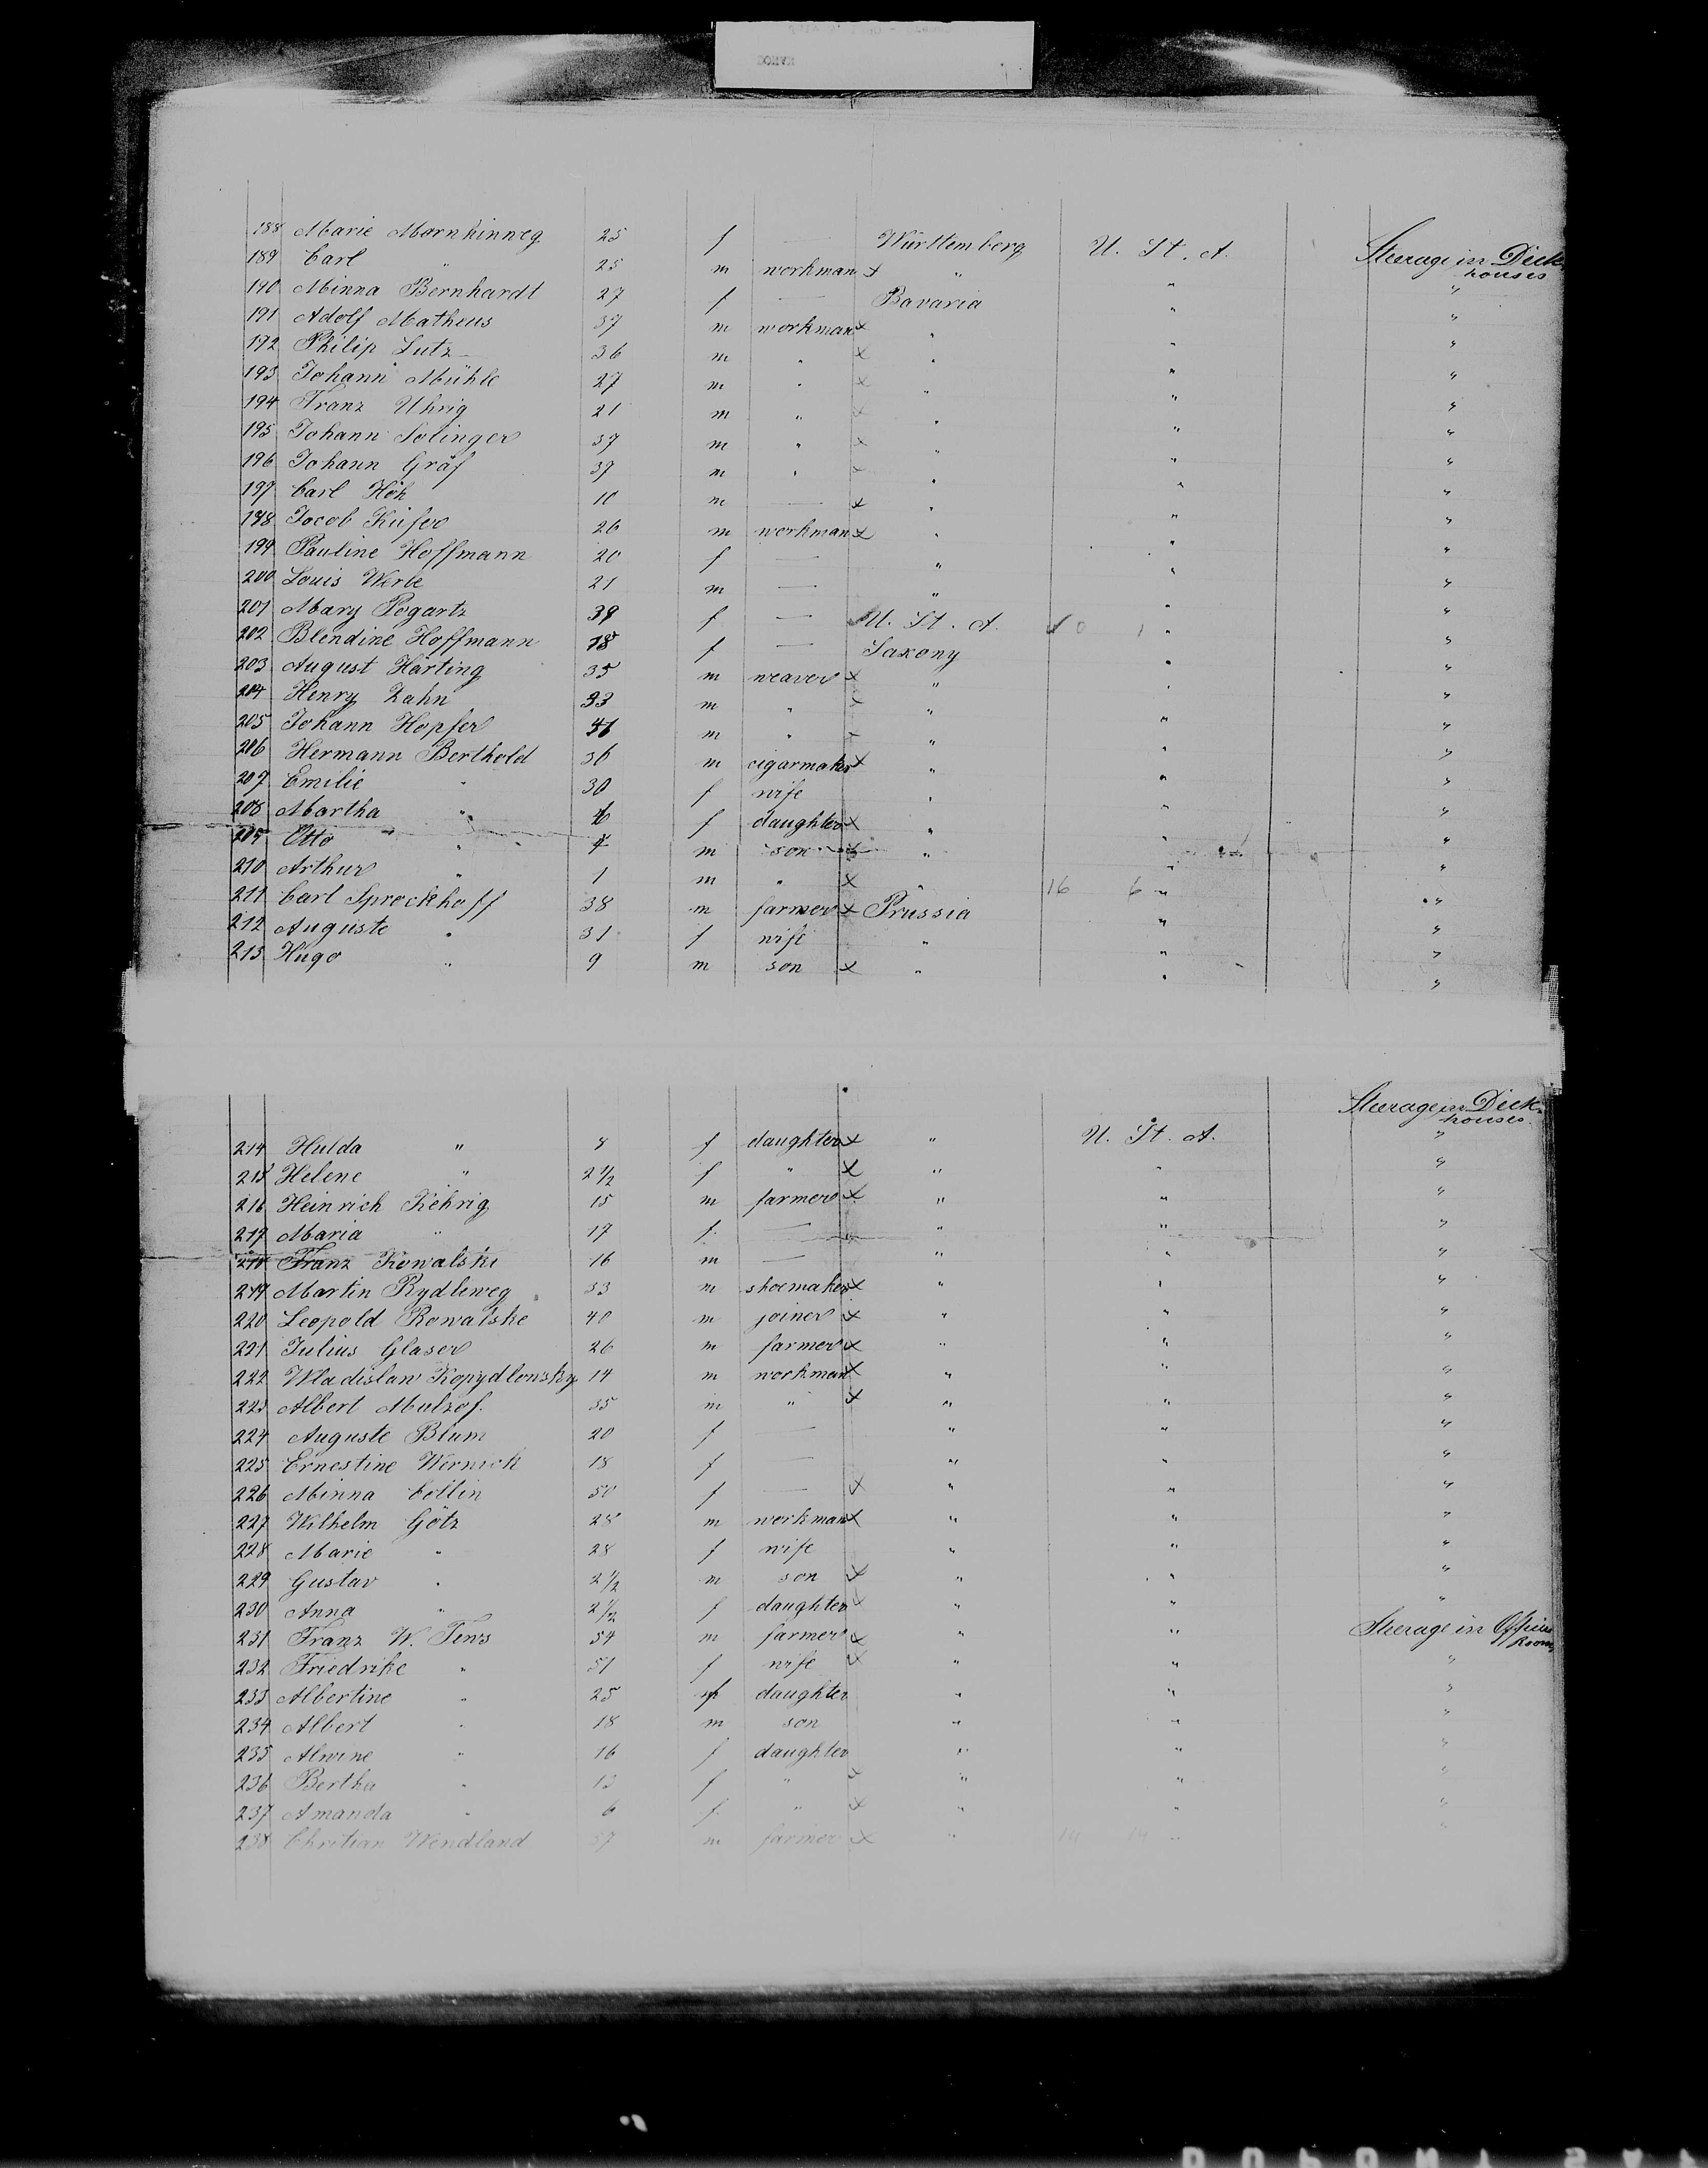 188 Marie Mornhinweg 25 f — Württemberg U. St. A. Steerage in Deck houses
189 Carl " 25 m workman x " " "
190 Minna Bernhardt 27 f — Bavaria " "
191 Adolf Matheus 37 m workman x " " "
192 Philip Lutz 36 m " x " " "
193 Johann Mühle 27 m " x " " "
194 Franz Uhrig 21 m " x " " "
195 Johann Solinger 37 m " x " " "
196 Johann Gräf 37 m " x " " "
197 Carl Höh 10 m — x " " "
198 Jacob Küfer 26 m workman x " " "
199 Pauline Hoffmann 20 f — " " "
200 Louis Werle 21 m — " " "
201 Mary Bogartz 39 f — U. St. A. 10 1 " "
202 Blendine Hoffmann 18 f — Saxony " "
203 August Härting 35 m weaver x " " "
204 Henry Zahn 33 m " x " " "
205 Johann Hopfer 41 m " x " " "
206 Hermann Berthold 36 m cigarmaker x " " "
207 Emilie " 30 f wife " " "
208 Martha " 6 f daughter x " " "
209 Otto " 4 m son x " " "
210 Arthur " 1 m " x " 16 6 " "
211 Carl Sprockhoff 38 m farmer x Prussia " "
212 Auguste " 31 f wife " " "
213 Hugo " 9 m son x " " "
Steerage in Deck houses
214 Hulda " 8 f daughter x " U. St. A. "
215 Helene " 2 1/2 f " x " " "
216 Heinrich Kehrig 15 m farmer x " " "
217 Maria " 17 f. — " " "
218 Franz Kowalski 16 m — " " "
219 Martin Rydleweg 33 m shoemaker x " " "
220 Leopold Kowalske 40 m joiner x " " "
221 Julius Glaser 26 m farmer x " " "
222 Wladislaw Kopydlonsky 14 m workman x " " "
223 Albert Mulzof 35 m " x " " "
224 Auguste Blum 20 f — " " "
225 Ernestine Wernich 18 f — " " "
226 Minna Collin 50 f — x " " "
227 Wilhelm Götz 28 m workman x " " "
228 Marie " 28 f wife " " "
229 Gustav " 2 1/2 m son x " " "
230 Anna " 2 1/2 f daughter x " " "
231 Franz W. Tews 54 m farmer x " " Steerage in Officers Rooms
232 Friedrike " 51 f wife x " " "
233 Albertine " 25 f daughter " " "
234 Albert " 18 m son " " "
235 Alwine " 16 f daughter " " "
236 Bertha " 13 f " x " " "
237 Amanda " 6 f. " x " " "
238 Christian Wendland 57 m farmer x " 14 14 " "